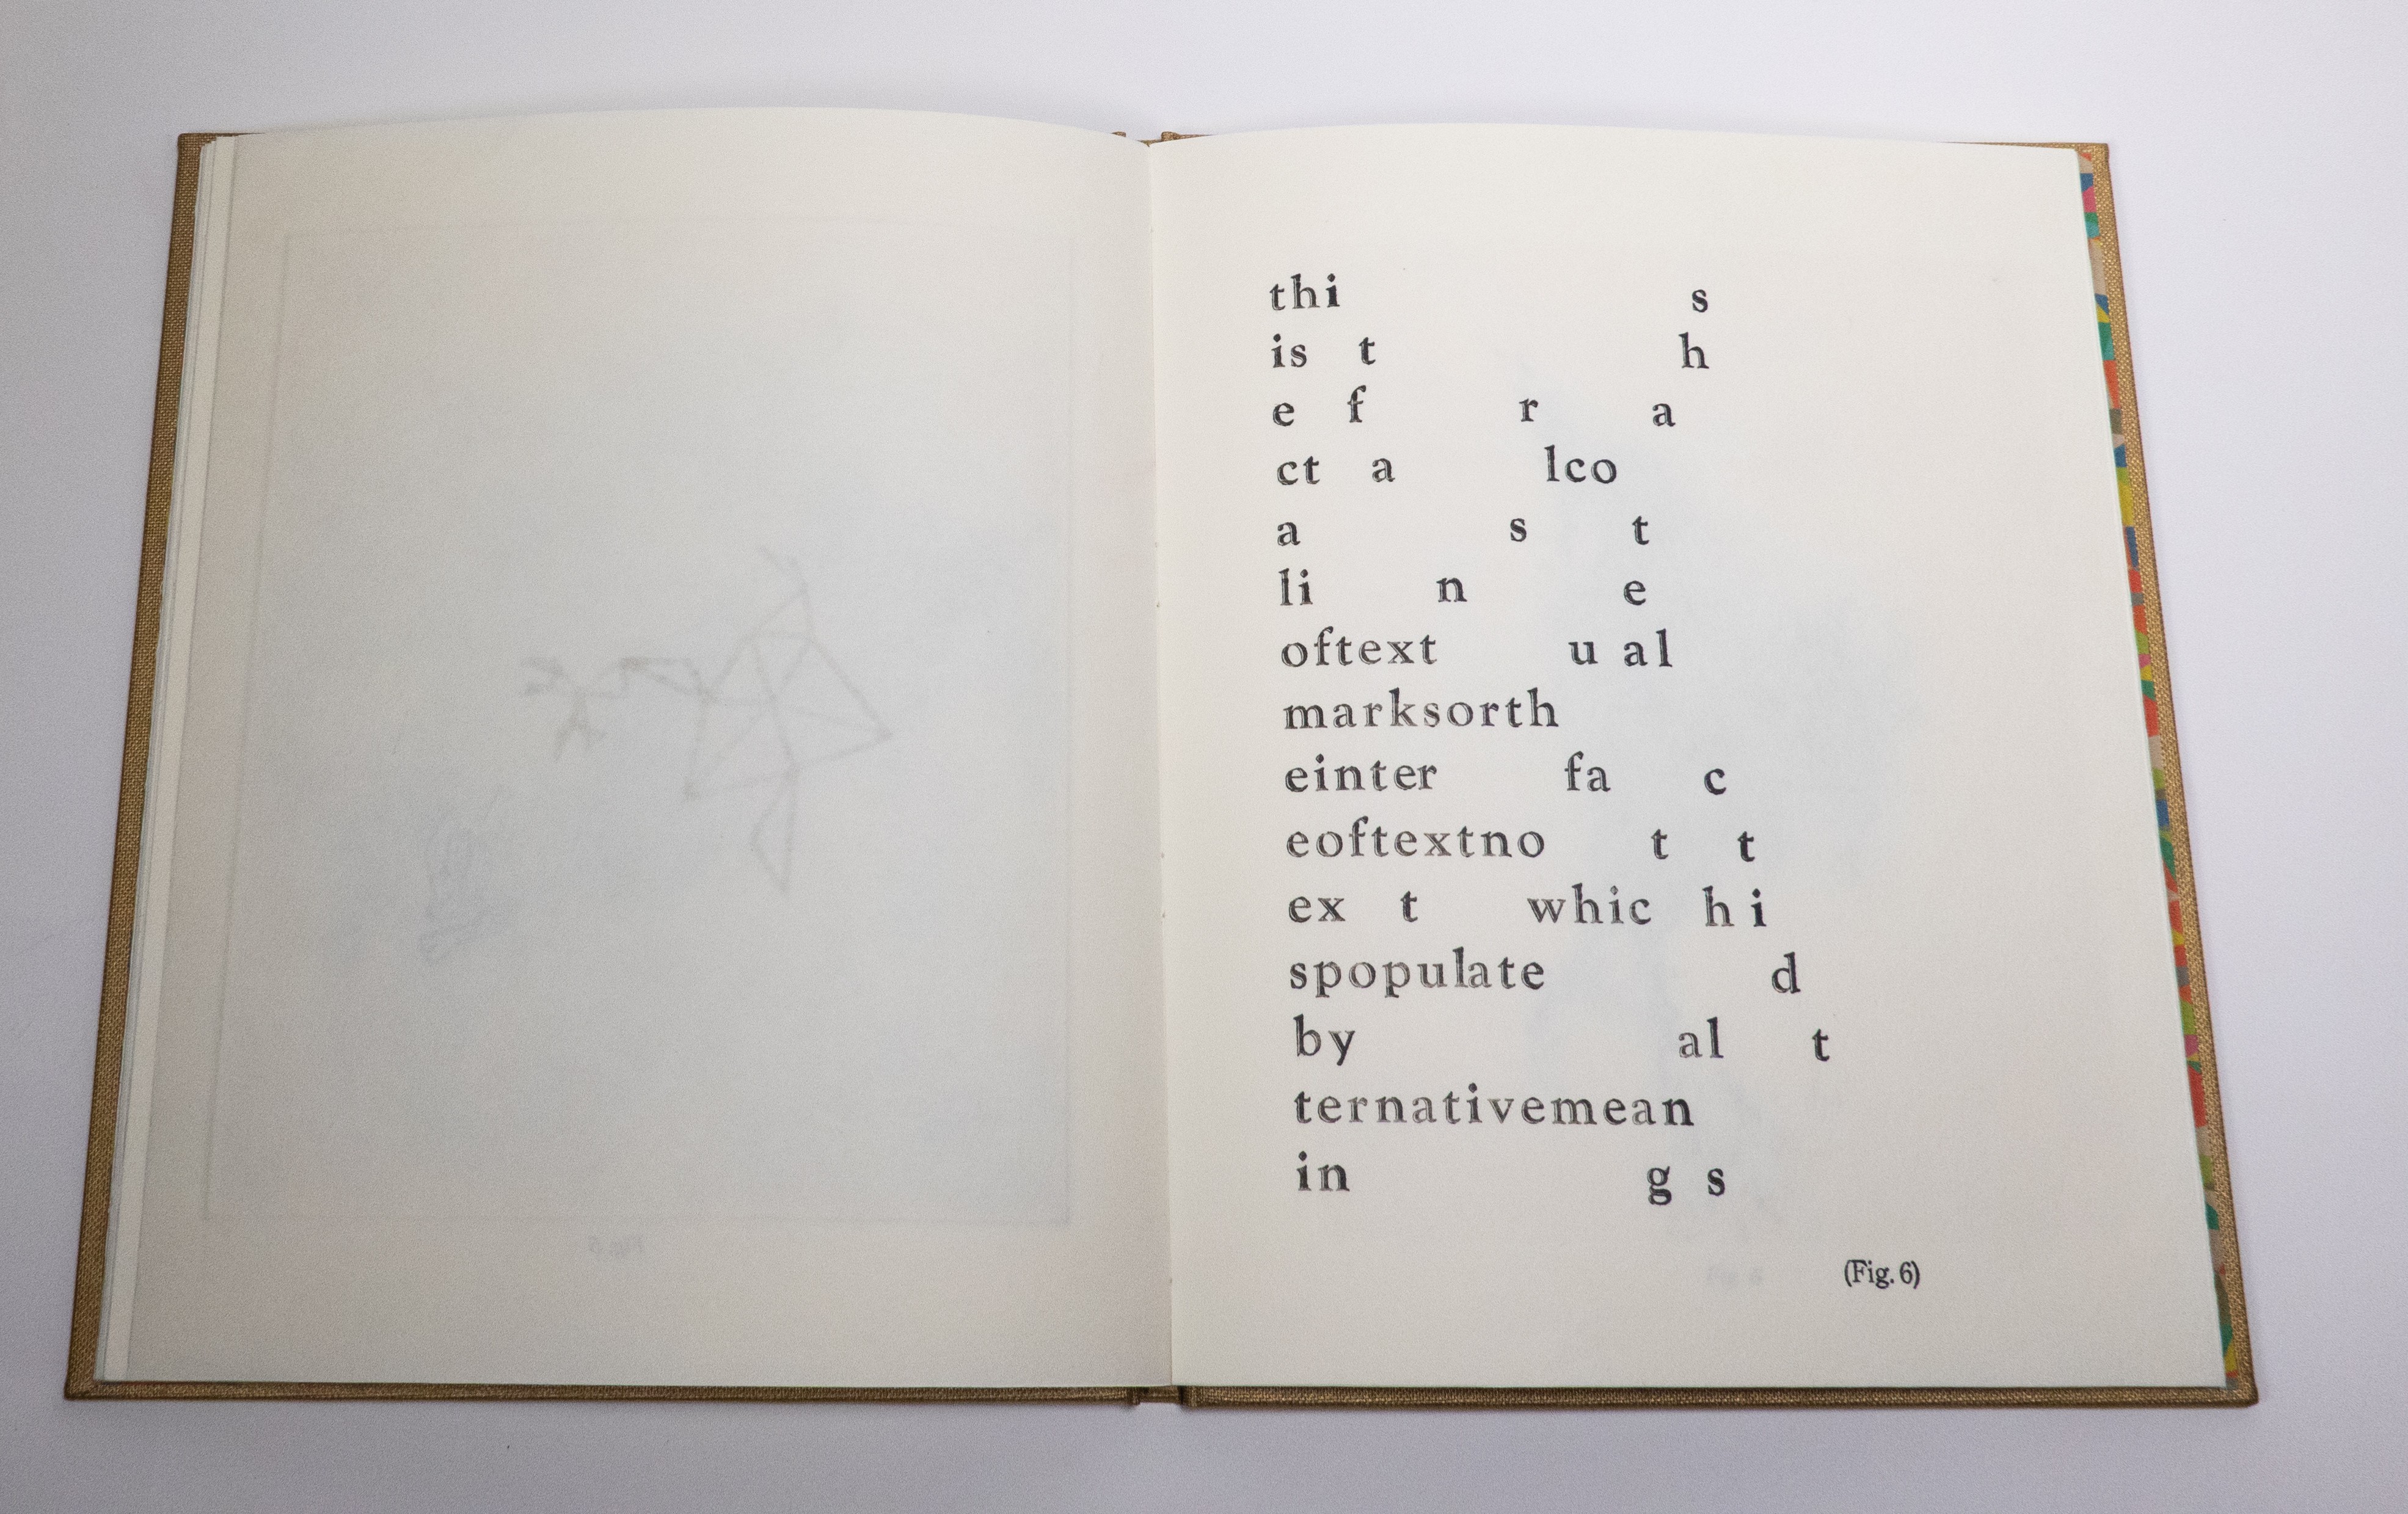 thi s
is t h
e f r a
ct a lco
a s t
li n e
oftext u al
marksorth
einter fa c
eoftextno t t
ex t whic h i
spopulate d
by al t
ternativemean
in g s
(Fig. 6)